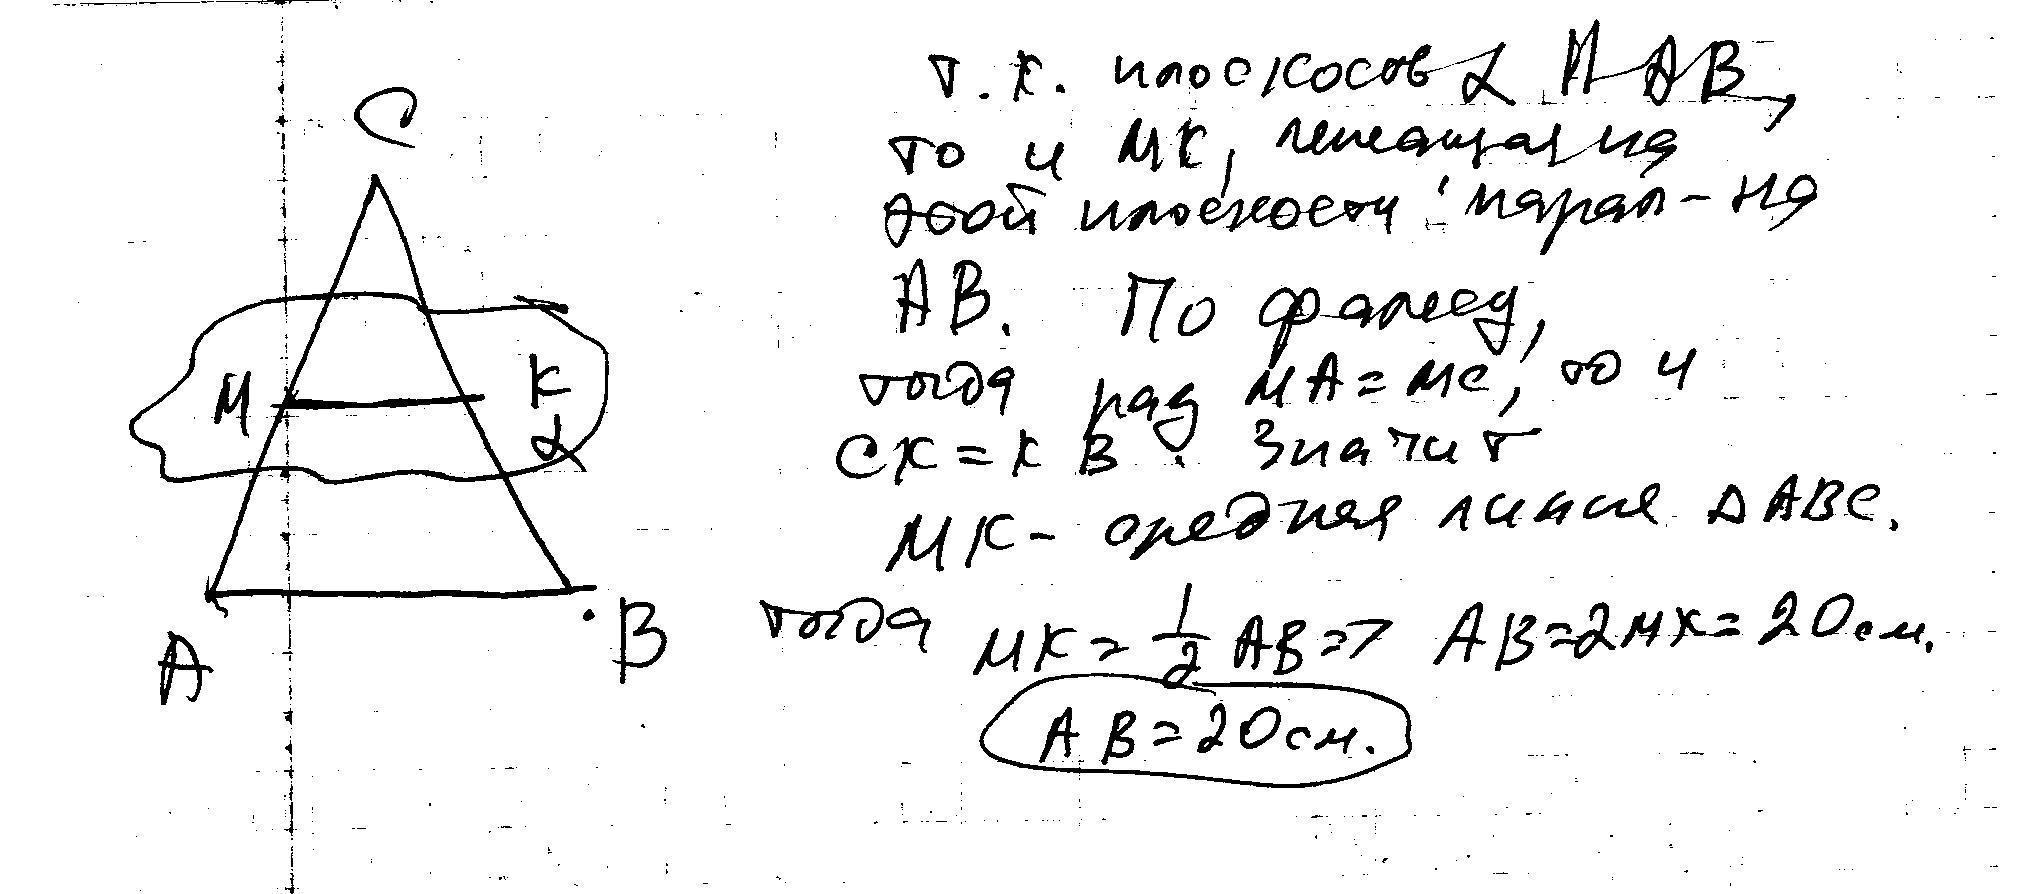 C
M K
α
A B
т.к. плоскость α || AB,
то и MK, лежащая на
этой плоскости парал-на
AB. По фалесу,
тогда MA=MC, то и
CK=KB. Значит
MK- средняя линия ΔABC.
тогда MK=1/2 AB=> AB=2MK=20см.
AB=20см.